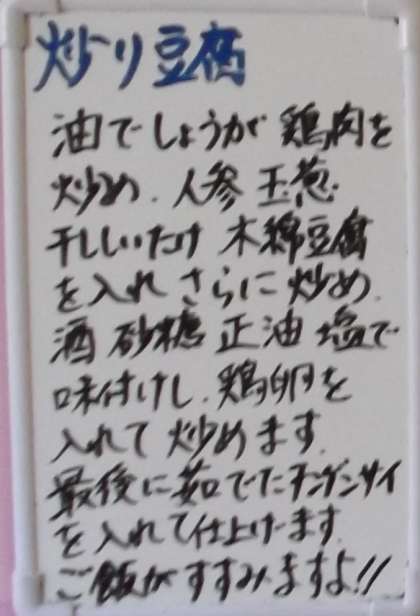 炒り豆腐
油でしょうが 鶏肉を
炒め、人参 玉葱
干ししいたけ 木綿豆腐
を入れ さらに 炒め、
酒 砂糖 正油 塩で
味付けし、鶏卵を
入れて 炒めます。
最後に茹でたチンゲンサイ
を入れて仕上げます。
ご飯がすすみますよ!!